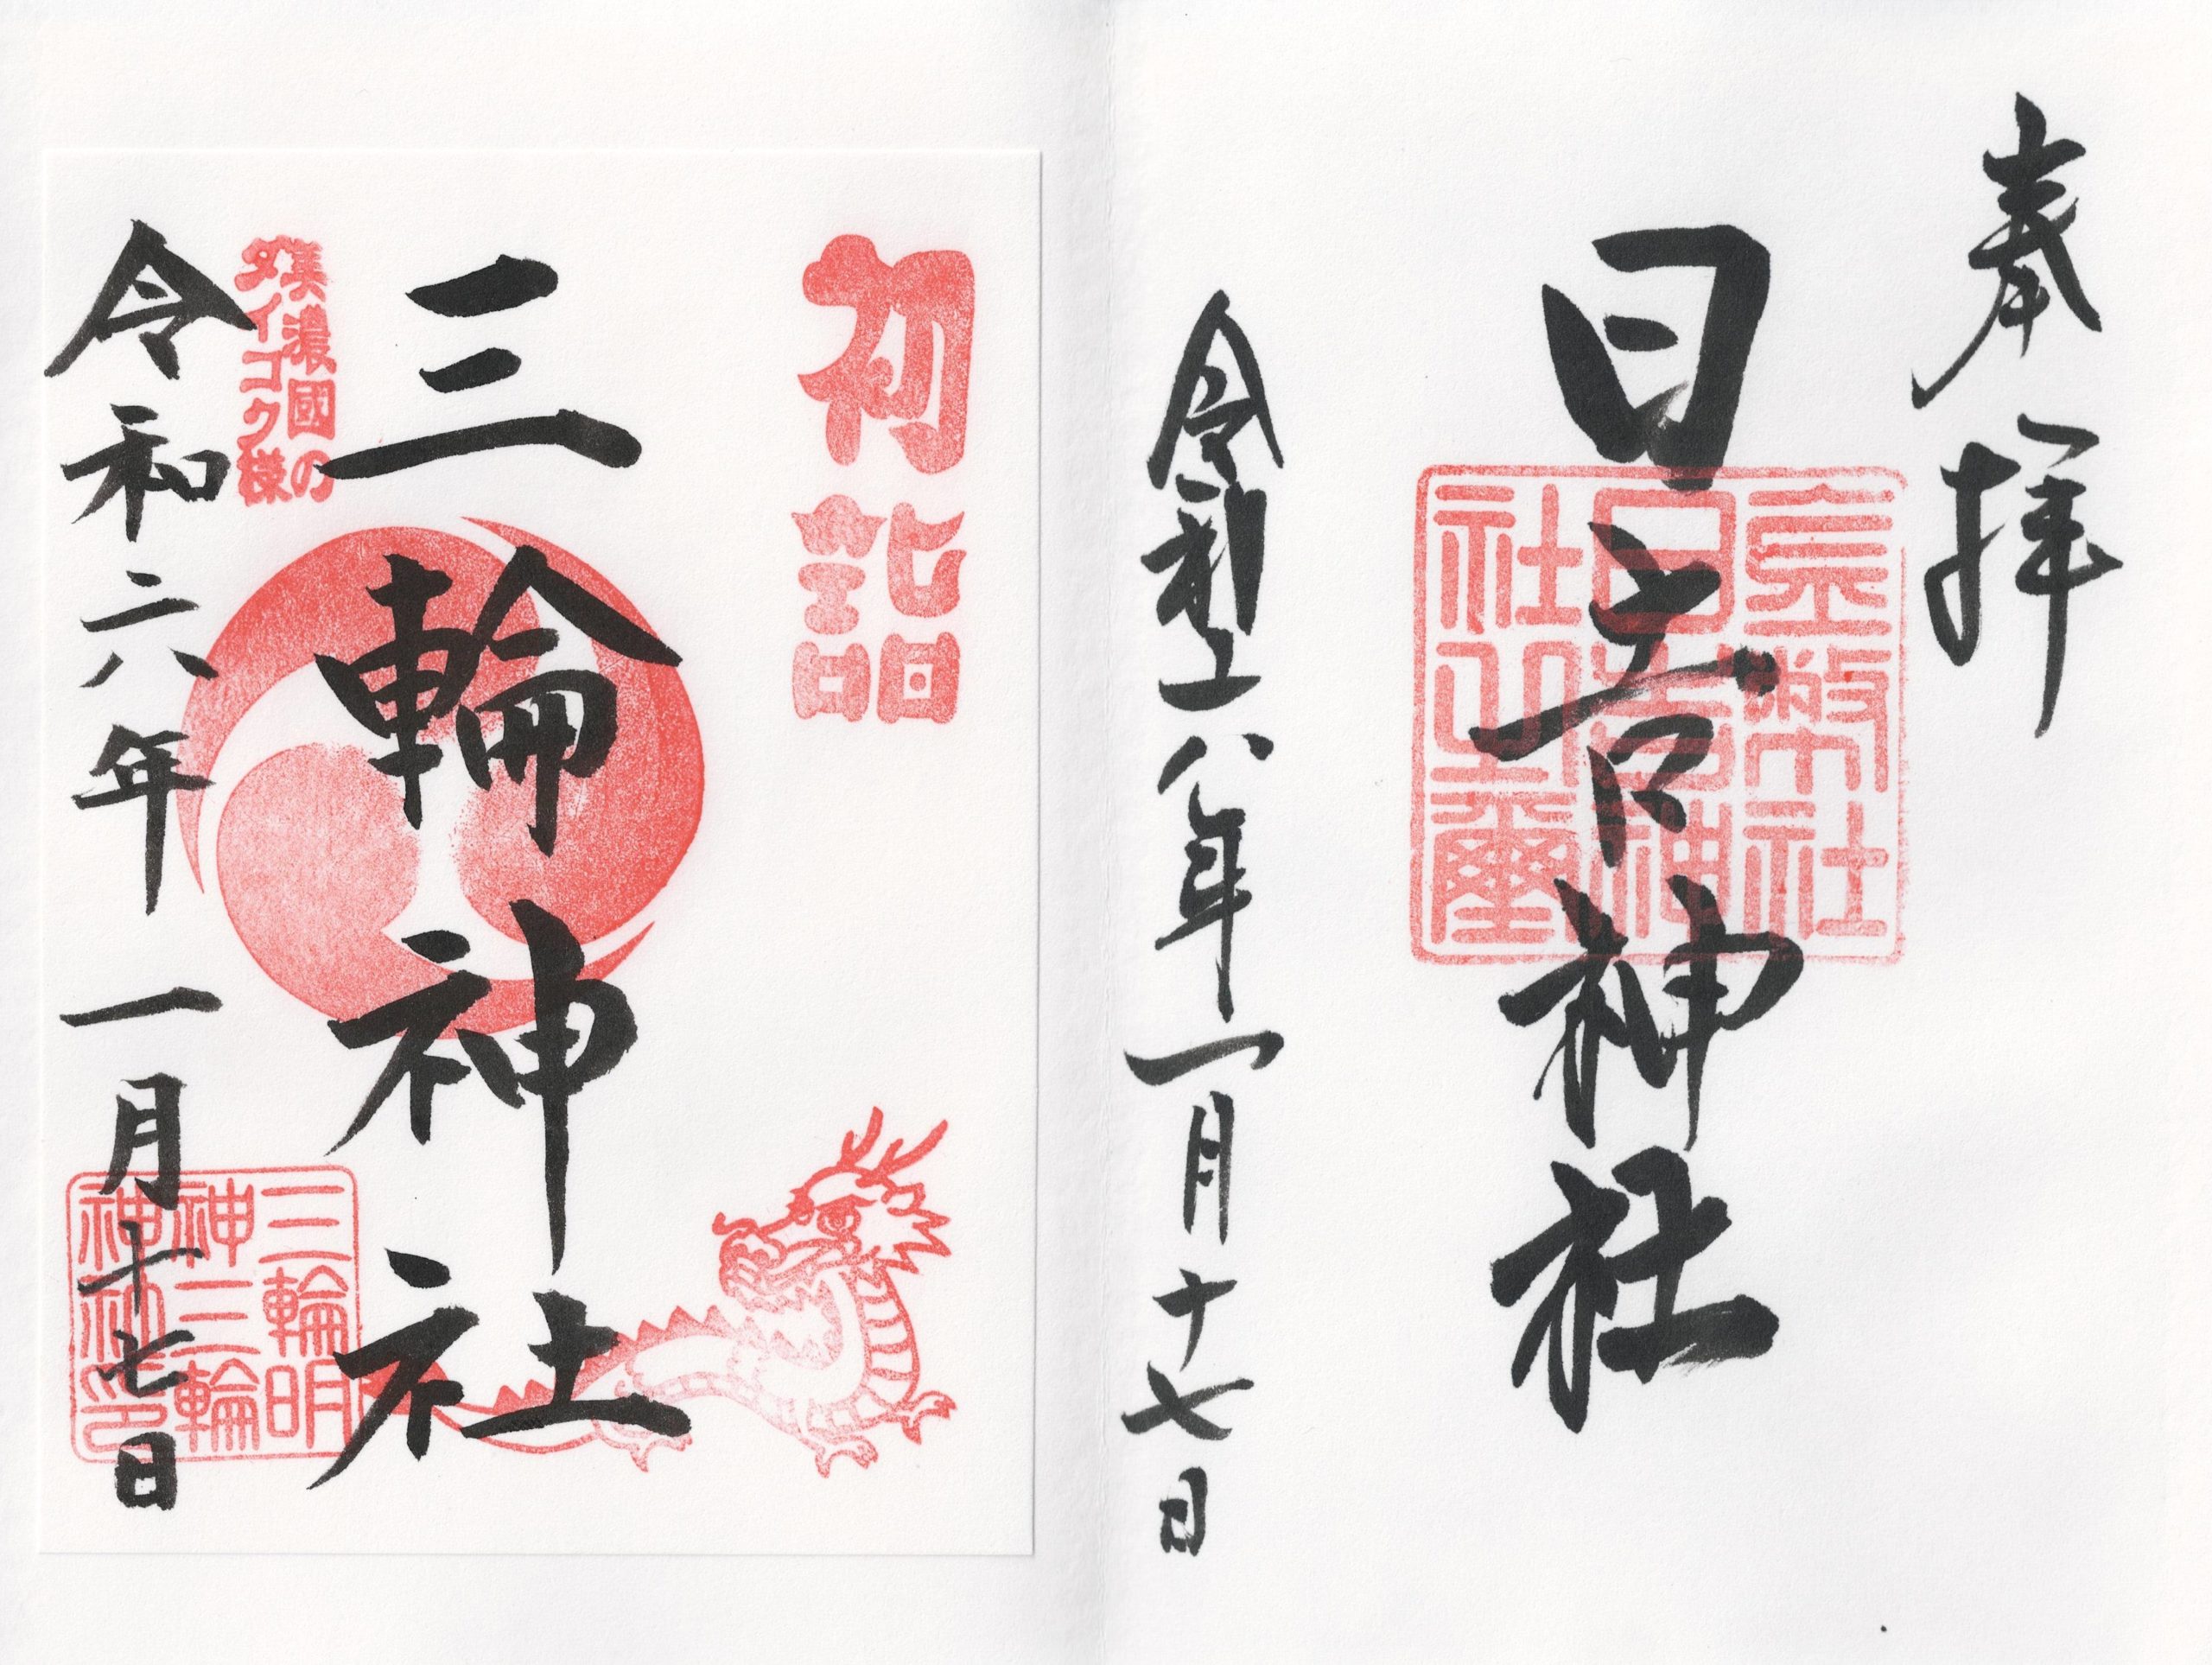 奉拝
日吉神社
皇幣社
日吉神
社之璽
令和六年一月十七日
初詣
三輪神社
美濃國の
ダイコク様
令和六年一月十七日
三輪明
神三輪
神社印